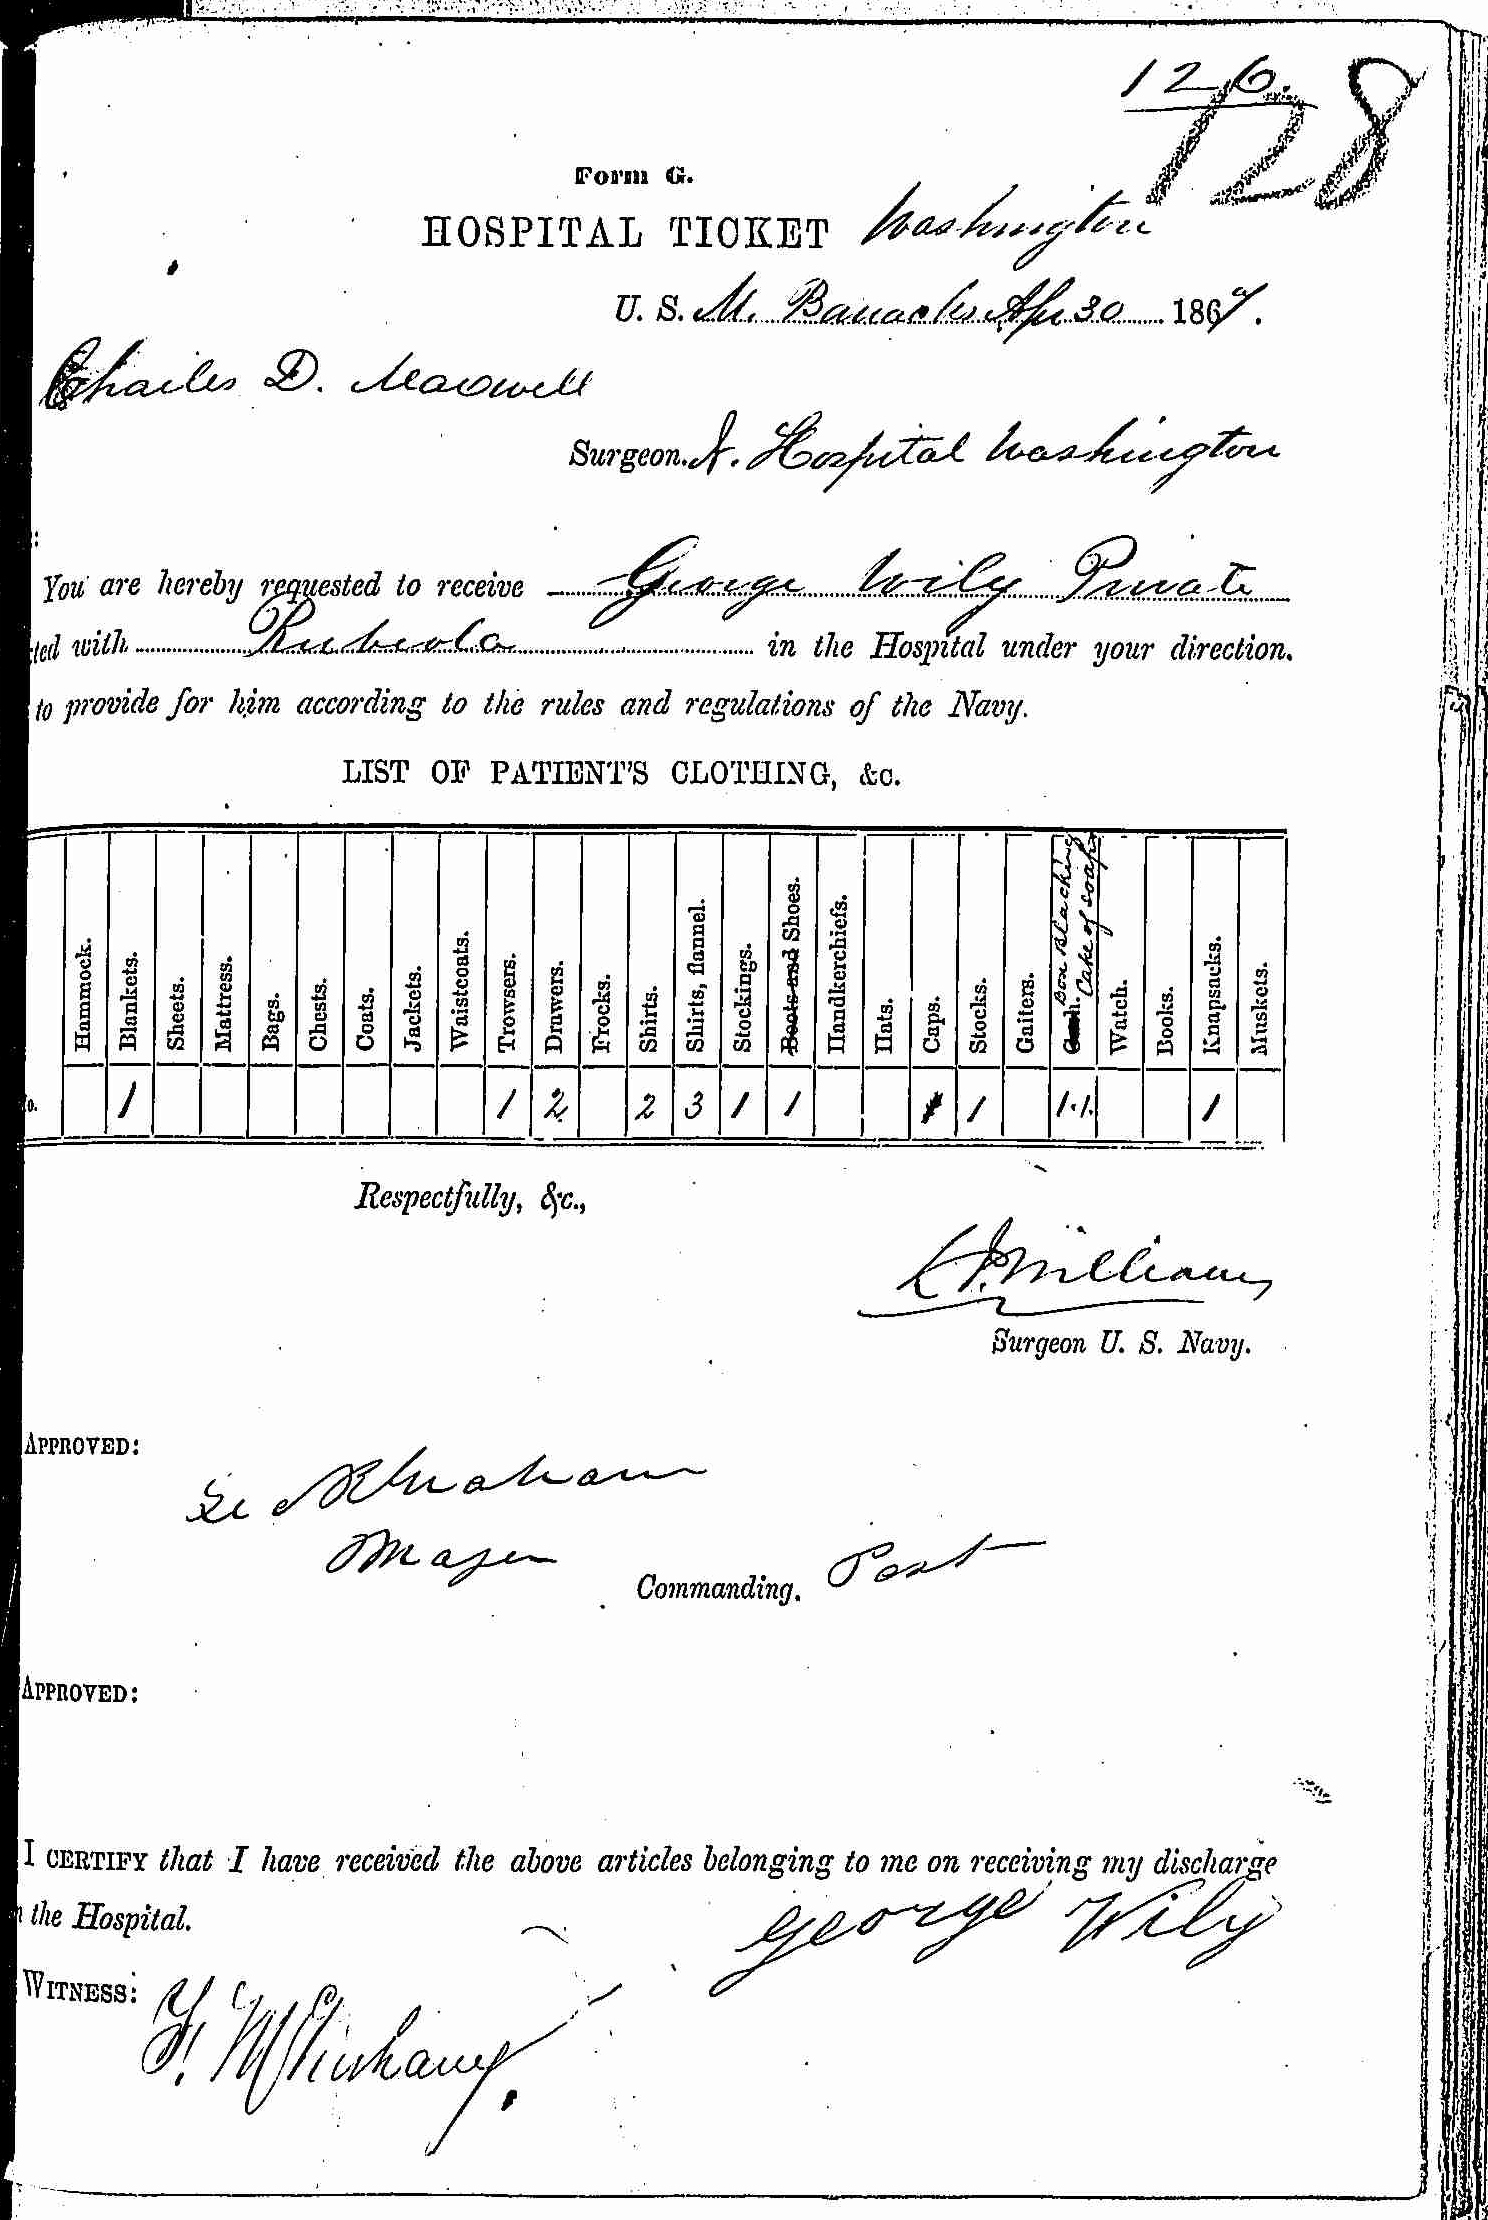 126.
128
Form G.
HOSPITAL TICKET Washington
U. S. M. Barracks Apr 30 1867.
Charles D. Maxwell
Surgeon. N. Hospital Washington
:
You are hereby requested to receive George Wily Private
ted with Rubeola in the Hospital under your direction.
to provide for him according to the rules and regulations of the Navy.
LIST OF PATIENT'S CLOTHING, &c.
Hammock. Blankets. Sheets. Mattress. Bags. Chests. Coats. Jackets. Waistcoats. Trowsers. Drawers. Frocks. Shirts. Shirts, flannel. Stockings. Boots and Shoes. Handkerchiefs. Hats. Caps. Stocks. Gaiters. Box Blacking Cake of soap Watch. Books. Knapsacks. Muskets.
o. 1 1 2 2 3 1 1 1 1 1.1. 1
Respectfully, &c.,
Williams
Surgeon U. S. Navy.
APPROVED:
Graham
Major
Commanding. Post
APPROVED:
I CERTIFY that I have received the above articles belonging to me on receiving my discharge
the Hospital.
George Wily
WITNESS: